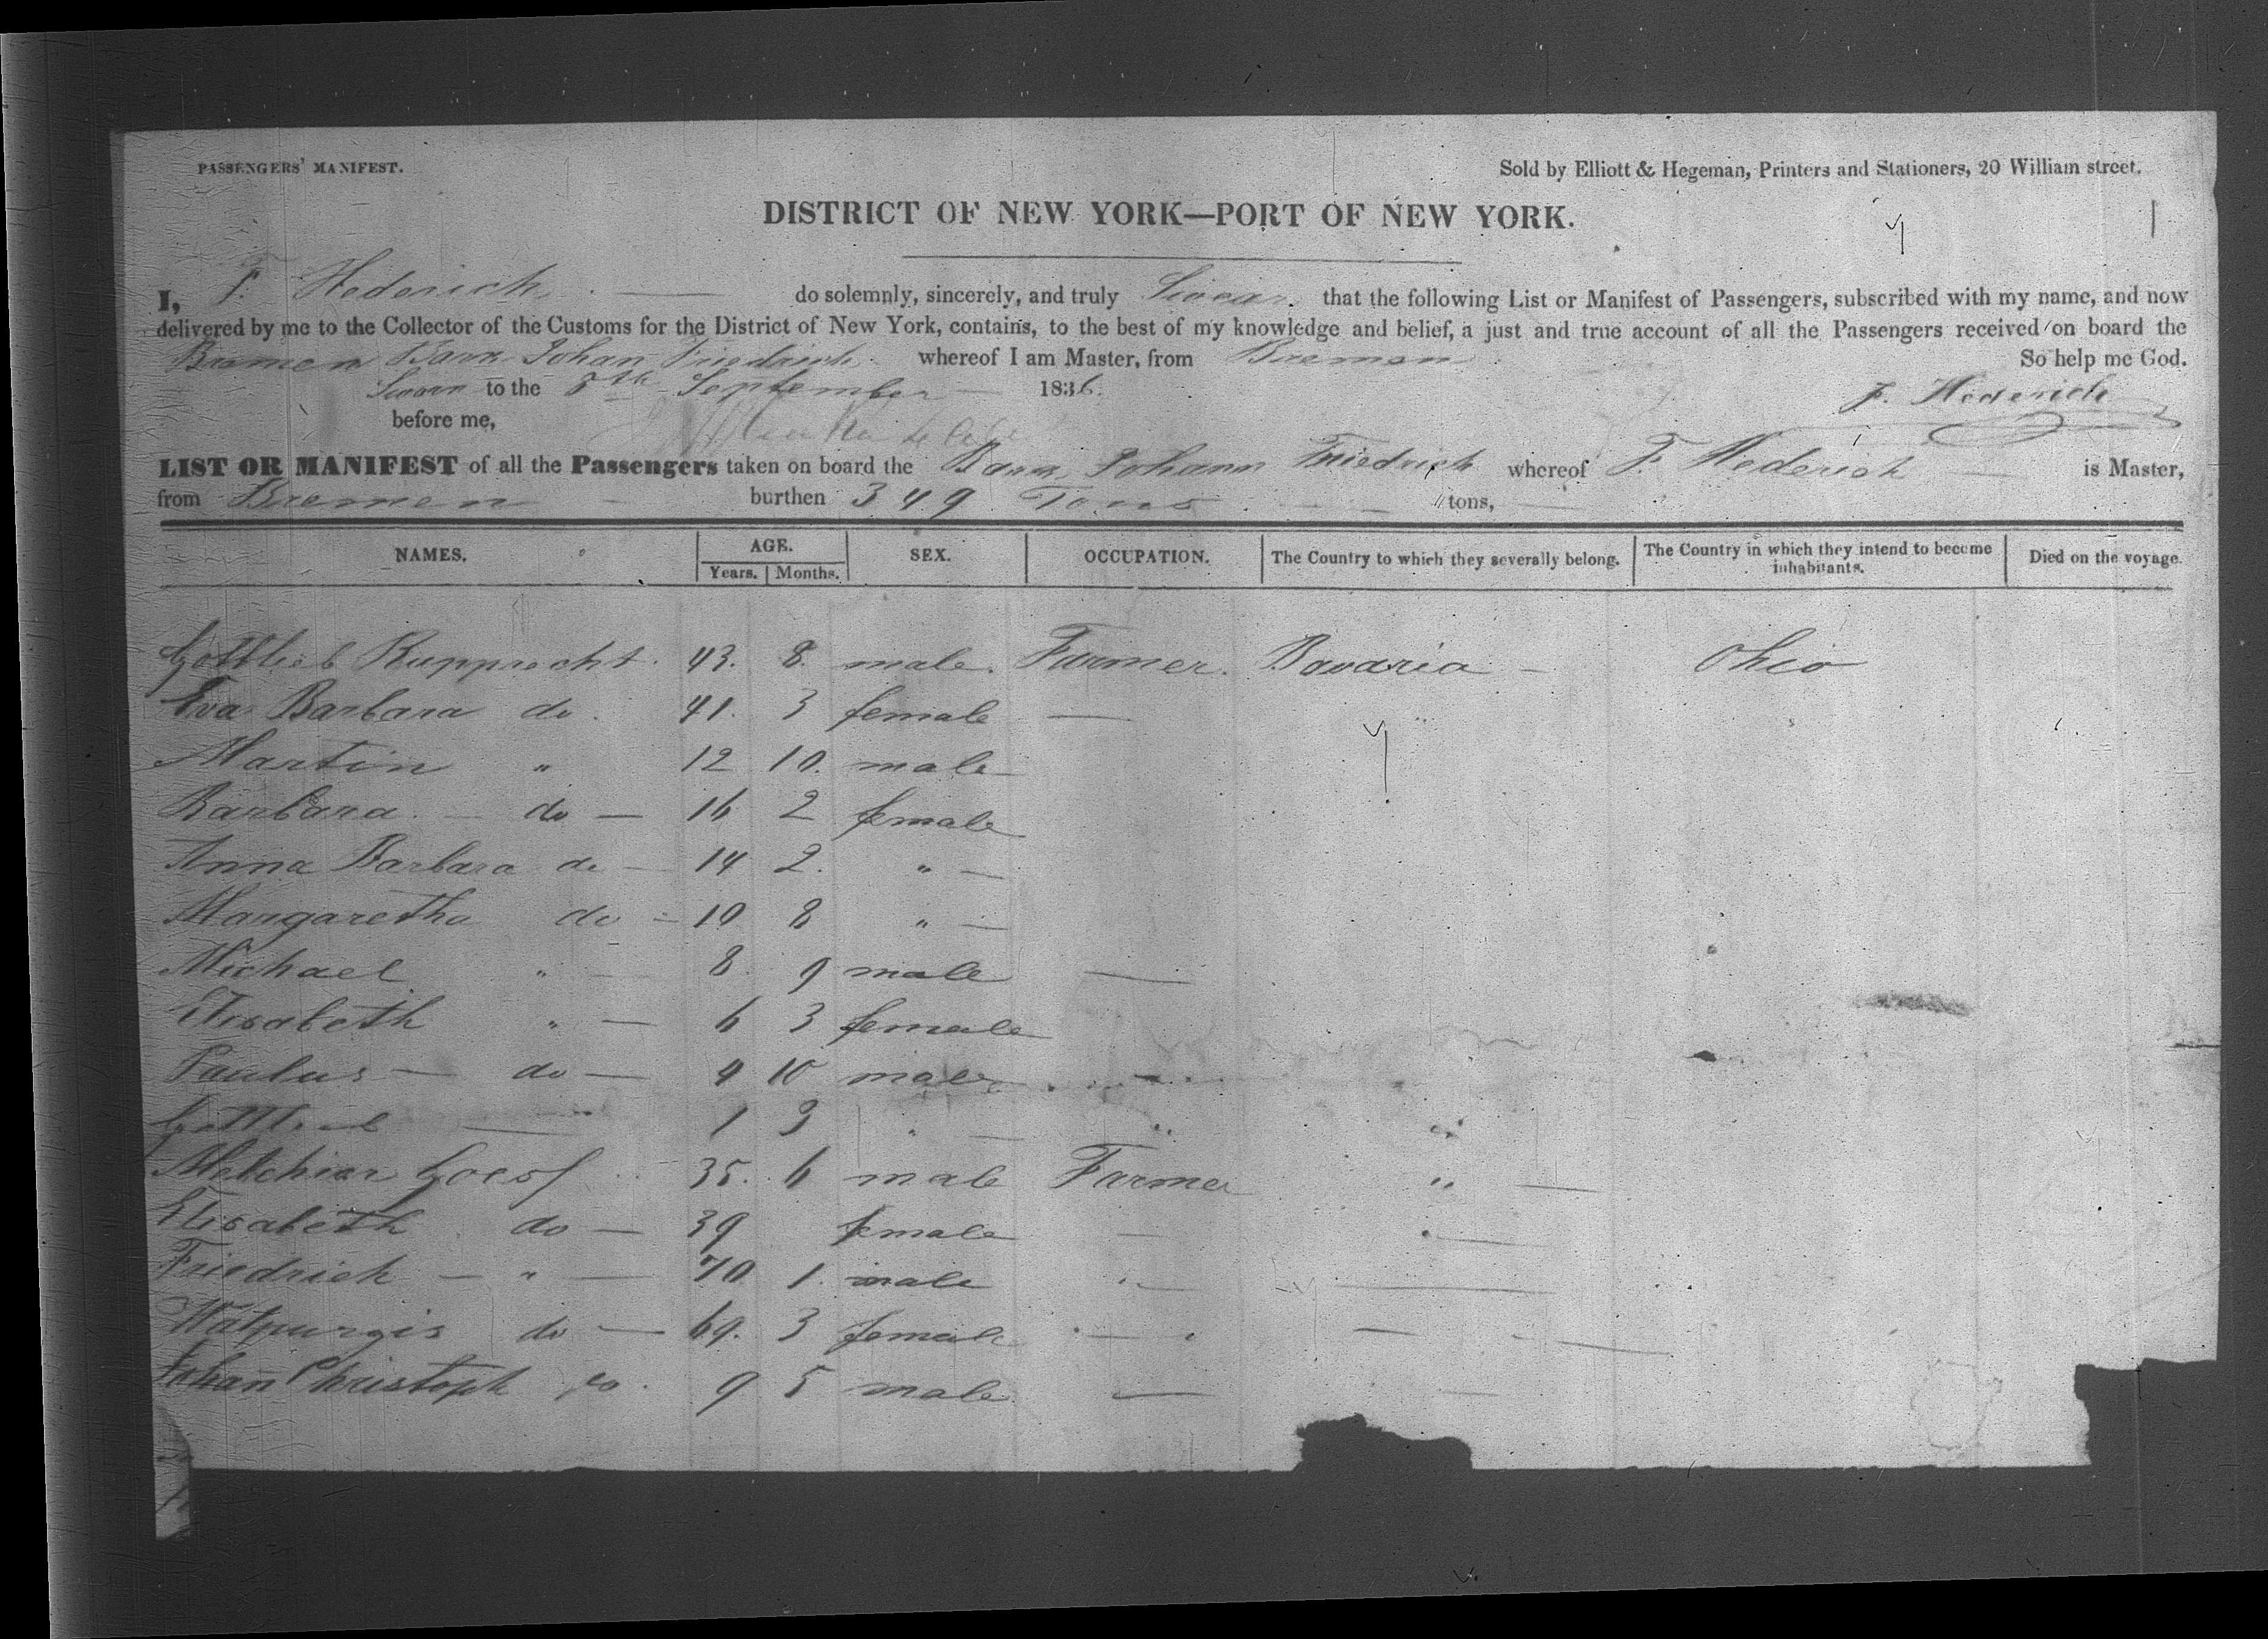 PASSENGERS' MANIFEST.
Sold by Elliott & Hegeman, Printers and Stationers, 20 William street.
DISTRICT OF NEW YORK—PORT OF NEW YORK.
I, F. Hederich. do solemnly, sincerely, and truly Swear. that the following List or Manifest of Passengers, subscribed with my name, and now
delivered by me to the Collector of the Customs for the District of New York, contains, to the best of my knowledge and belief, a just and true account of all the Passengers received on board the
Bremen Bark Johan Friedrich whereof I am Master, from Bremen So help me God.
Sworn to the 8th September 1836. F. Hederich
before me,
LIST OR MANIFEST of all the Passengers taken on board the Bark Johann Friedrich whereof F. Hederich is Master,
from Bremen burthen 349 Tons tons,
NAMES. AGE. SEX. OCCUPATION. The Country to which they severally belong. The Country in which they intend to become inhabitants. Died on the voyage.
Years. Months.
Gottlieb Rupprecht. 43. 8. male. Farmer. Bavaria — Ohio
Eva Barbara do. 41. 3 female —
Martin " 12 10. male —
Barbara. — do — 16 2 female
Anna Barbara do — 14 2. " —
Margaretha do — 10 8 " —
Michael " — 8 9 male —
Elisabeth " — 6 3 female
Paulus — do — 4 10 male
Gottlieb — 1 3 " — " "
Melchior 35. 6 male Farmer " —
Elisabeth do — 39 female — " —
Friedrich — " — 70 1. male " —
Walpurgis do — 69. 3 female — —
Johan Christoph do. 9 5 male —